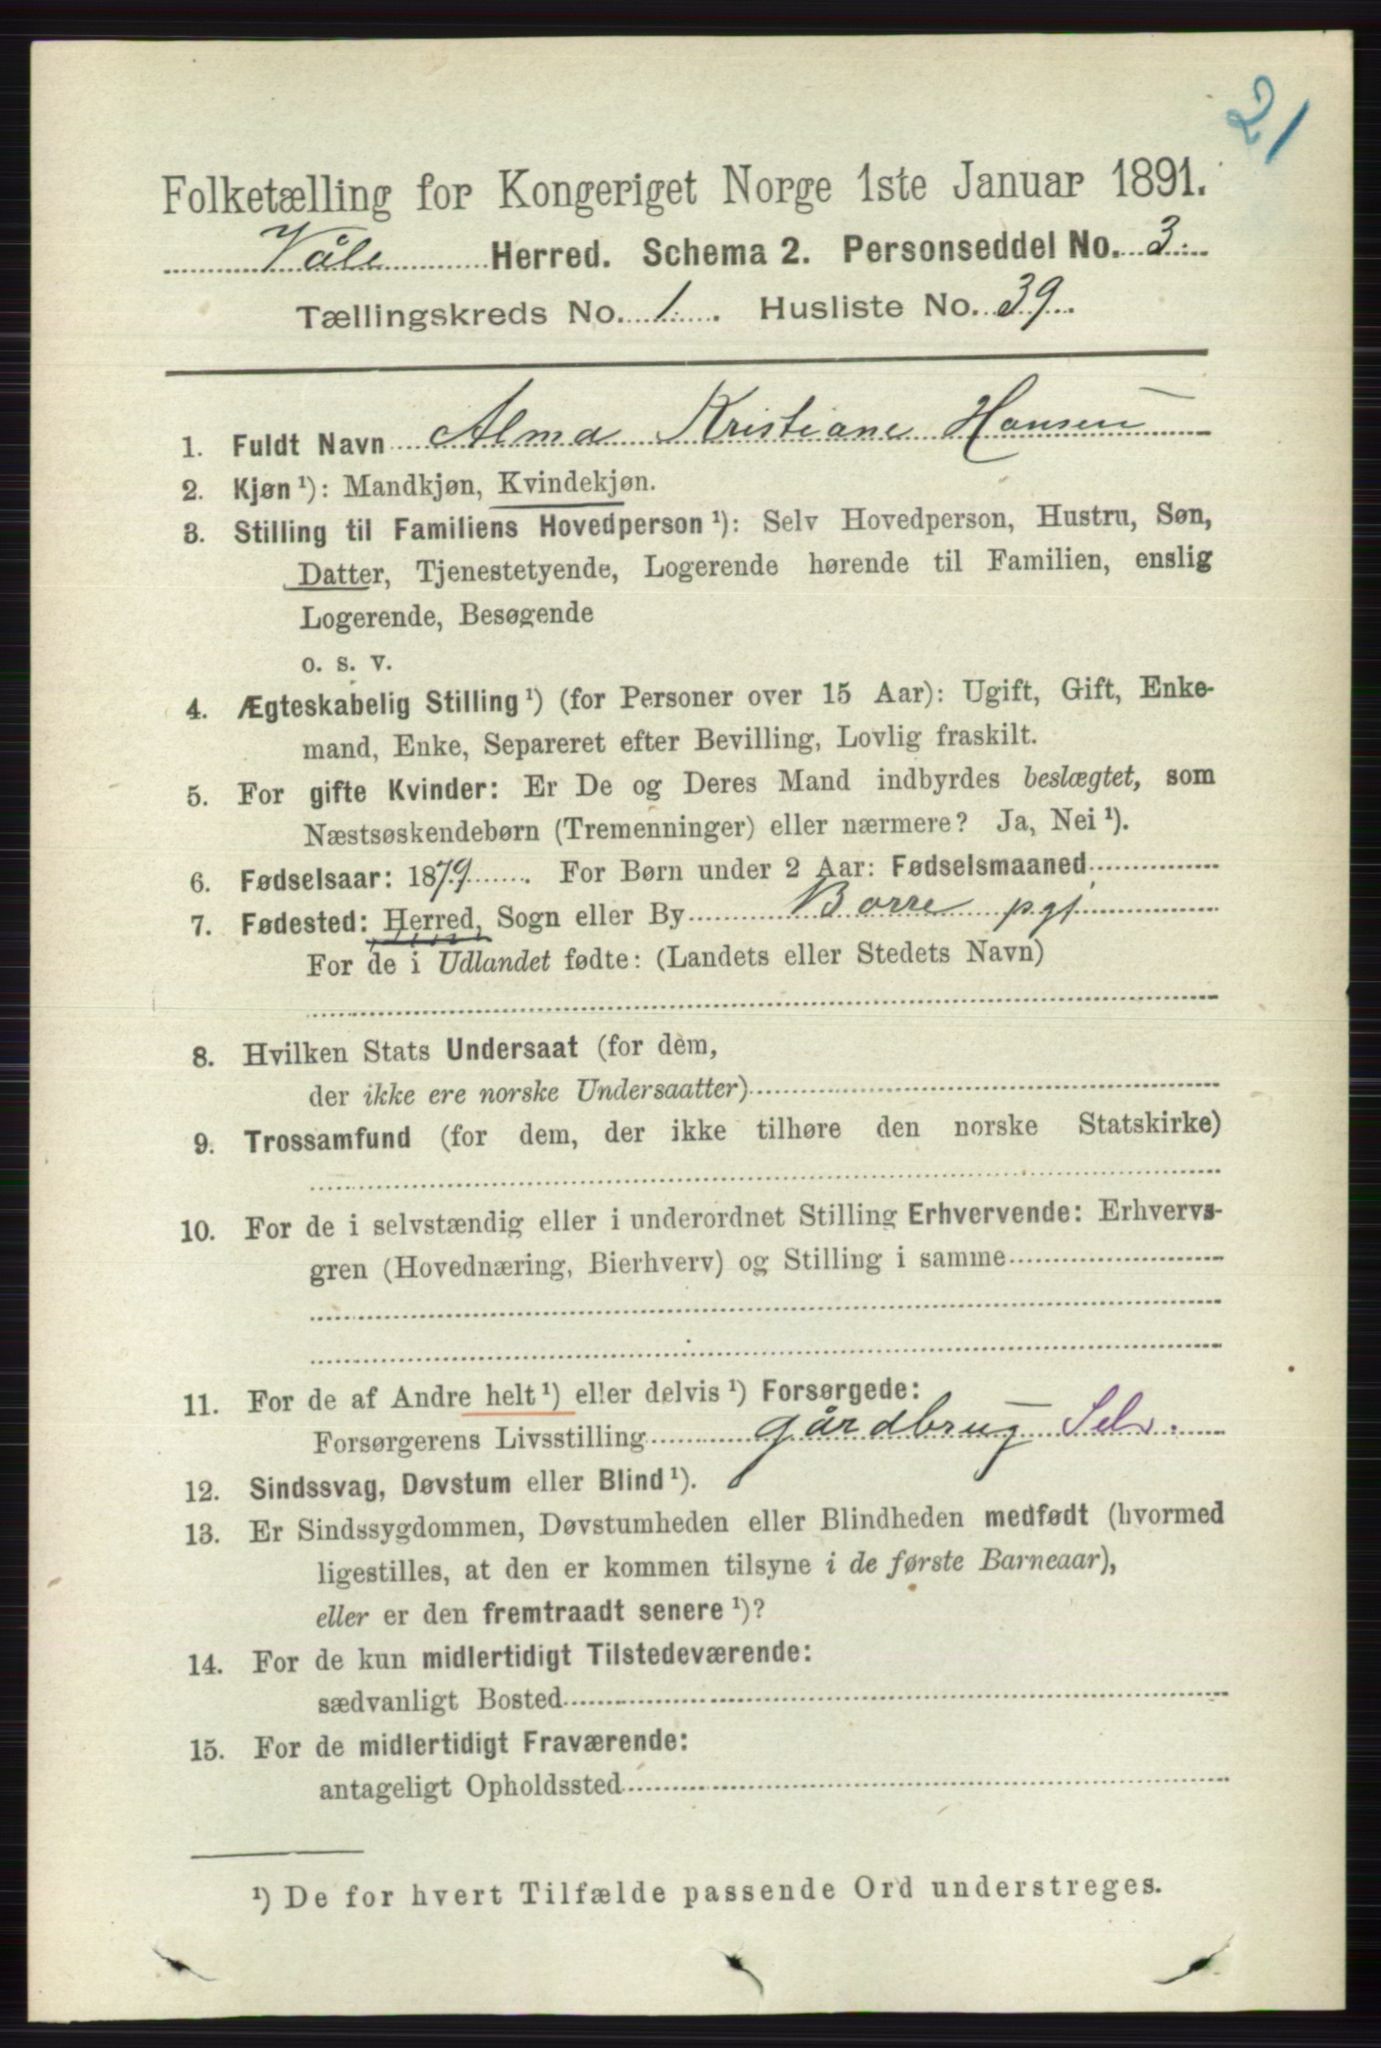 21
Folketælling for Kongeriget Norge 1ste Januar 1891.
Våle Herred. Schema 2. Personseddel No. 3.
Tællingskreds No. 1. Husliste No. 39.
1. Fuldt Navn Alma Kristiane Hansen
2. Kjøn ¹): Mandkjøn, Kvindekjøn.
3. Stilling til Familiens Hovedperson ¹): Selv Hovedperson, Hustru, Søn,
Datter, Tjenestetyende, Logerende hørende til Familien, enslig
Logerende, Besøgende
o. s. v.
4. Ægteskabelig Stilling ¹) (for Personer over 15 Aar): Ugift, Gift, Enke-
mand, Enke, Separeret efter Bevilling, Lovlig fraskilt.
5. For gifte Kvinder: Er De og Deres Mand indbyrdes beslægtet, som
Næstsøskendebørn (Tremenninger) eller nærmere? Ja, Nei ¹).
6. Fødselsaar: 1879. For Børn under 2 Aar: Fødselsmaaned
7. Fødested: Herred, Sogn eller By Borre pgj.
For de i Udlandet fødte: (Landets eller Stedets Navn)
8. Hvilken Stats Undersaat (for dem,
der ikke ere norske Undersaatter)
9. Trossamfund (for dem, der ikke tilhøre den norske Statskirke)
10. For de i selvstændig eller i underordnet Stilling Erhvervende: Erhvervs-
gren (Hovednæring, Bierhverv) og Stilling i samme
11. For de af Andre helt ¹) eller delvis ¹) Forsørgede:
Forsørgerens Livsstilling gårdbrug Selv.
12. Sindssvag, Døvstum eller Blind ¹).
13. Er Sindssygdommen, Døvstumheden eller Blindheden medfødt (hvormed
ligestilles, at den er kommen tilsyne i de første Barneaar),
eller er den fremtraadt senere ¹)?
14. For de kun midlertidigt Tilstedeværende:
sædvanligt Bosted
15. For de midlertidigt Fraværende:
antageligt Opholdssted
¹) De for hvert Tilfælde passende Ord understreges.